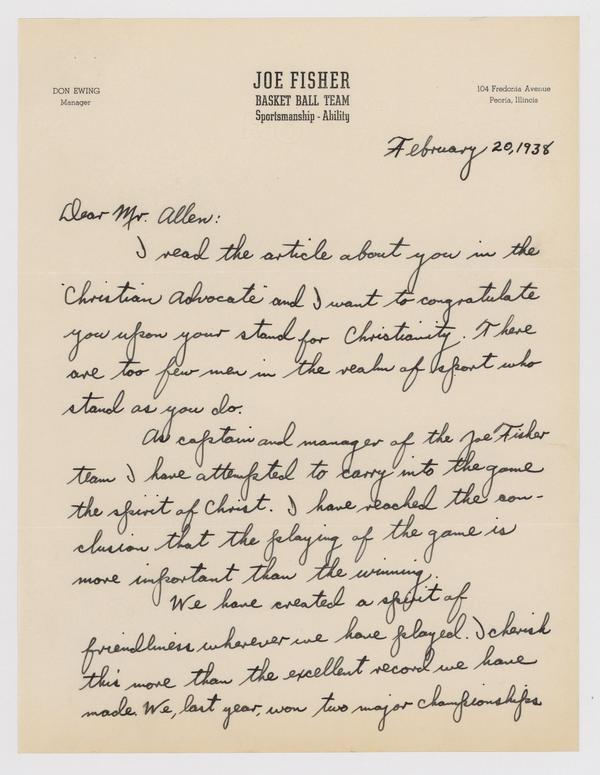 JOE FISHER
BASKET BALL TEAM
Sportsmanship - Ability
DON EWING
Manager
104 Fredonia Avenue
Peoria, Illinois
February 20, 1938
Dear Mr. Allen:
I read the article about you in the
"Christian Advocate" and I want to congratulate
you upon your stand for Christianity. There
are too few men in the realm of sport who
stand as you do.
As captain and manager of the Joe Fisher
team I have attempted to carry into the game
the spirit of Christ. I have reached the con-
clusion that the playing of the game is
more important than the winning.
We have created a spirit of
friendliness wherever we have played. I cherish
this more than the excellent record we have
made. We, last year, won two major championships